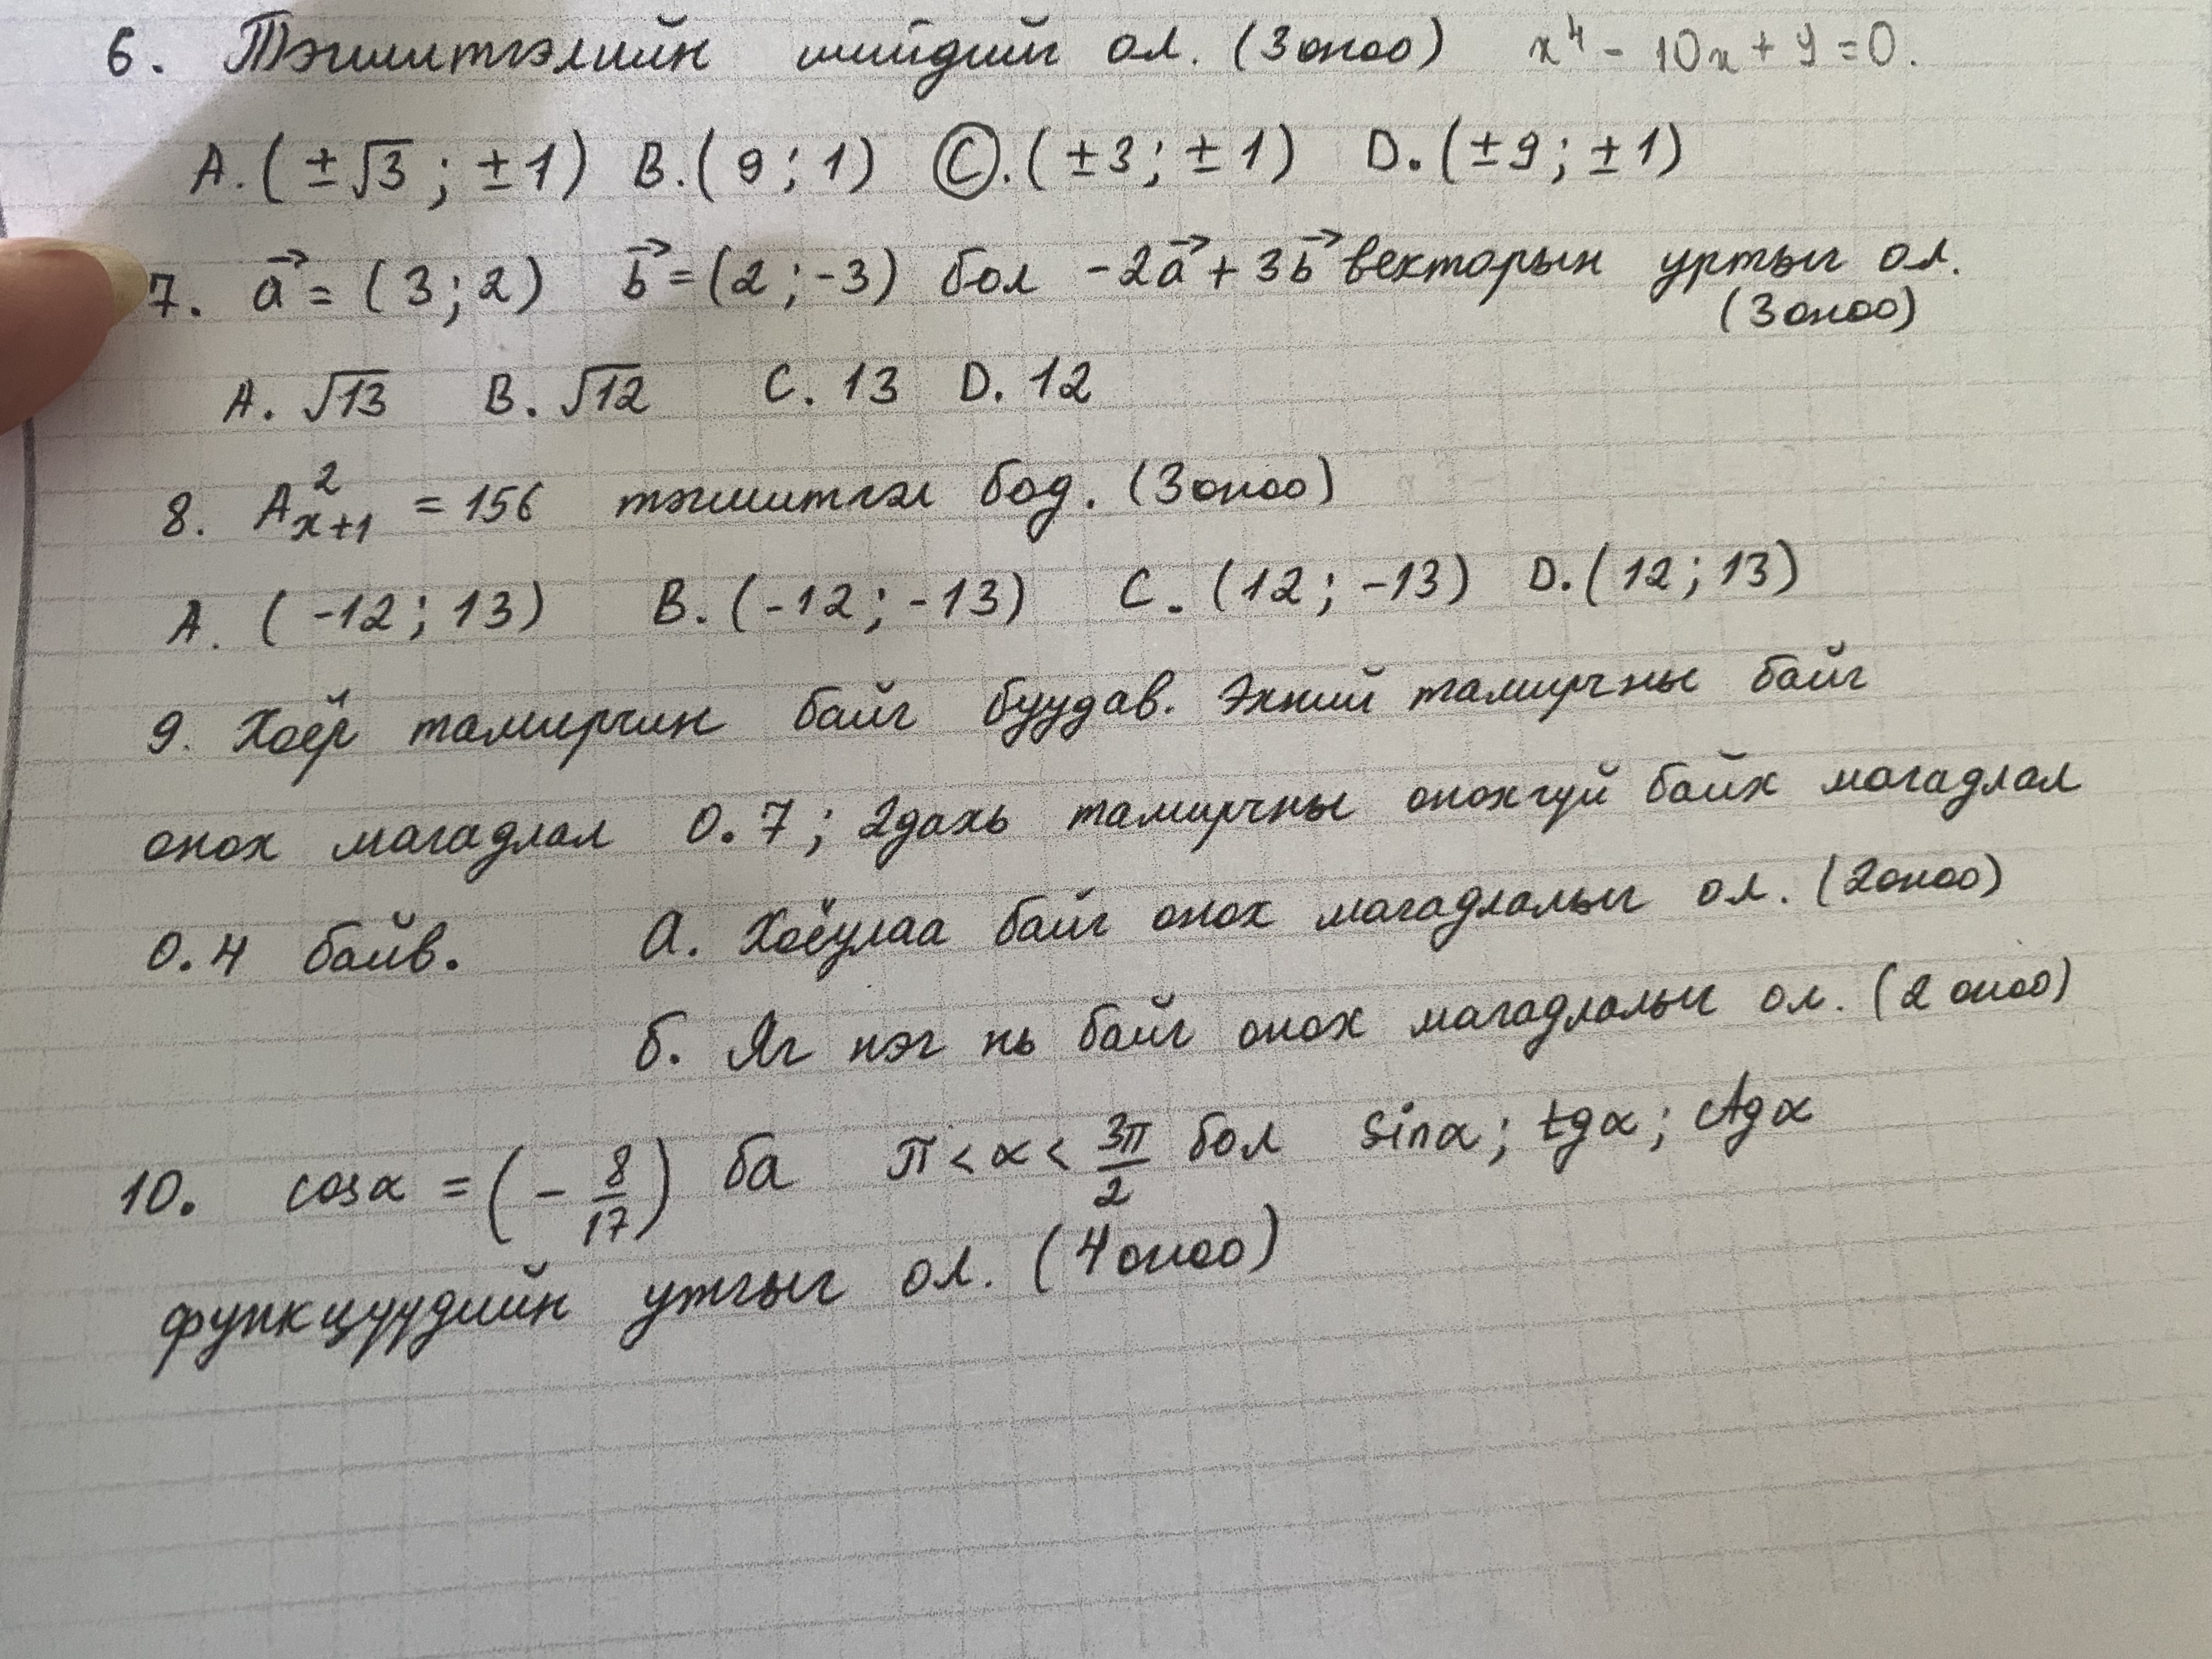 6. Тэгшитгэлийн шийдийг ол. (3 оноо) x⁴ - 10x + 9 = 0.
A. (±√3 ; ±1) B. (9 ; 1) C. (±3 ; ±1) D. (±9 ; ±1)
7. a⃗ = (3 ; 2) b⃗ = (2 ; -3) бол -2a⃗ + 3b⃗ векторын уртыг ол.
(3 оноо)
A. √13 B. √12 C. 13 D. 12
8. A²ₓ₊₁ = 156 тэгшитгэл бод. (3 оноо)
A. (-12 ; 13) B. (-12 ; -13) C. (12 ; -13) D. (12 ; 13)
9. Хоёр тамирчин байг буудав. Эхний тамирчны байг
онох магадлал 0.7 ; 2дахь тамирчны онохгүй байх магадлал
0.4 байв. А. Хоёулаа байг онох магадлалыг ол. (2 оноо)
б. Яг нэг нь байг онох магадлалыг ол. (2 оноо)
10. cosα = (- 8/17) ба π < α < 3π/2 бол sinα ; tgα ; ctgα
функцуудийн утгыг ол. (4 оноо)